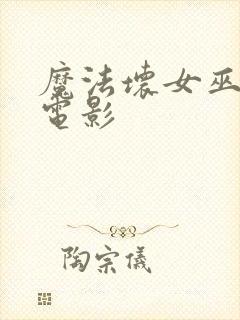 魔法壞女巫
電影
陶宗儀